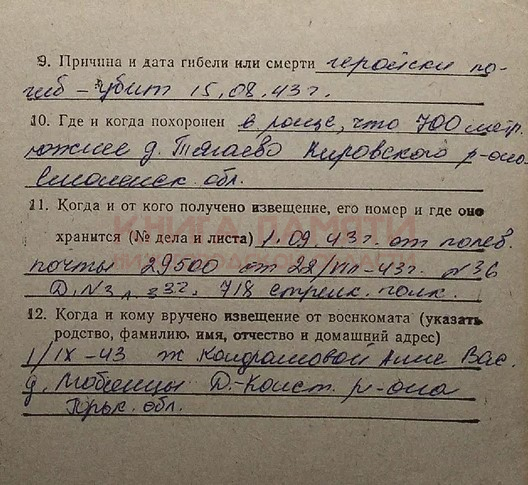 9. Причина и дата гибели или смерти геройски по-
гиб – убит 15.08.43 г.
10. Где и когда похоронен в роще, что 700 метр.
южнее д. Тягаево Кировского р-она
Смоленск. обл.
КНИГА ПАМЯТИ
11. Когда и от кого получено извещение, его номер и где оно
хранится (№ дела и листа) 1.09.43 г. от полев.
почты 29500 от 22/VIII-43 г. №36
718 стрелк. полк.
12. Когда и кому вручено извещение от военкомата (указать
родство, фамилию, имя, отчество и домашний адрес)
1/IX-43 ж Кондрашовой Анне Вас.
Д.-Конст. р-она
Горьк. обл.